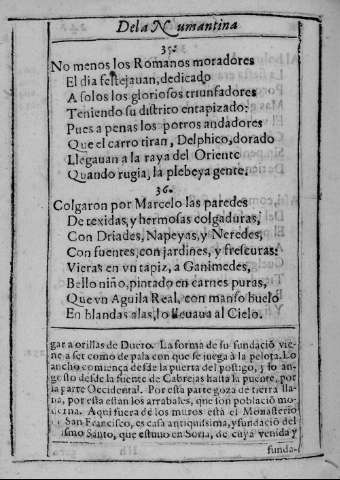 Dela Numantina
35.
No menos los Romanos moradores
El dia festejauan, dedicado
A solos los gloriosos triunfadores
Teniendo su distrito entapizado:
Pues a penas los potros andadores
Que el carro tiran, Delphico, dorado
Llegauan a la raya del Oriente
Quando rugia, la plebeya gente.
36.
Colgaron por Marcelo las paredes
De texidas, y hermosas colgaduras,
Con Driades, Napeyas, y Neredes,
Con fuentes, con jardines, y frescuras:
Vieras en vn tapiz, a Ganimedes,
Bello niño, pintado en carnes puras,
Que vn Aguila Real, con manso buelo
En blandas alas, lo lleuaua al Cielo.
gar a orillas de Duero. La forma de su fundació vie-
ne a ser como de pala con que se juega à la pelota. Lo
ancho comiença desde la puerta del postigo, y lo an-
gosto desde la fuente de Cabrejas hasta la puente, por
la parte Occidental. Por esta parte goza de tierra lla-
na, por esta estan los arrabales, que son població mo-
derna. Aqui fuera de los muros està el Monasterio
San Francisco, es casa antiquissima, y fundació del
ismo Santo, que estuuo en Soria, de cuya venida y
funda-